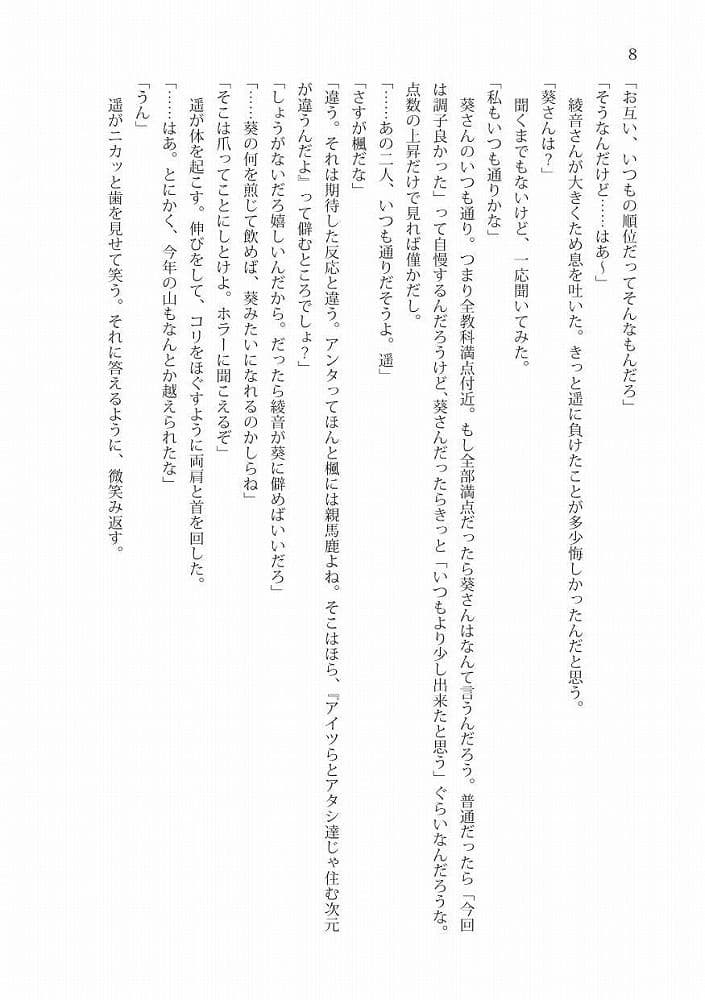 8
「お互い、いつもの順位だってそんなもんだろ」
「そうなんだけど……はあ〜」
　綾音さんが大きくため息を吐いた。きっと遥に負けたことが多少悔しかったんだと思う。
「葵さんは？」
　聞くまでもないけど、一応聞いてみた。
「私もいつも通りかな」
　葵さんのいつも通り。つまり全教科満点付近。もし全部満点だったら葵さんはなんて言うんだろう。普通だったら「今回
は調子良かった」って自慢するんだろうけど、葵さんだったらきっと「いつもより少し出来たと思う」ぐらいなんだろうな。
点数の上昇だけで見れば僅かだし。
「……あの二人、いつも通りだそうよ。遥」
「さすが楓だな」
「違う。それは期待した反応と違う。アンタってほんと楓には親馬鹿よね。そこはほら、『アイツらとアタシ達じゃ住む次元
が違うんだよ』って僻むところでしょ？」
「しょうがないだろ嬉しいんだから。だったら綾音が葵に僻めばいいだろ」
「……葵の何を煎じて飲めば、葵みたいになれるのかしらね」
「そこは爪ってことにしとけよ。ホラーに聞こえるぞ」
　遥が体を起こす。伸びをして、コリをほぐすように両肩と首を回した。
「……はあ。とにかく、今年の山もなんとか越えられたな」
「うん」
　遥がニカッと歯を見せて笑う。それに答えるように、微笑み返す。